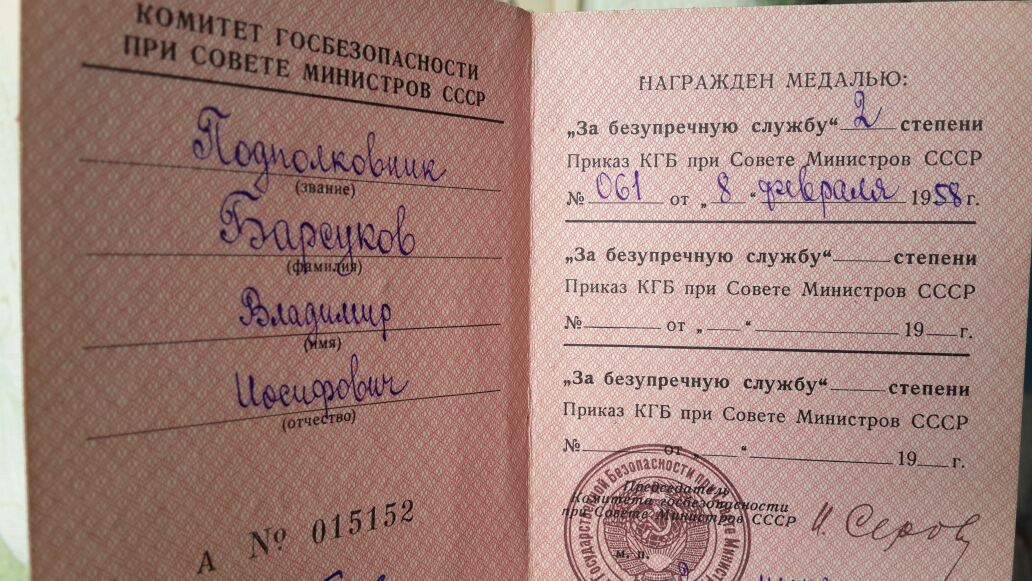 КОМИТЕТ ГОСБЕЗОПАСНОСТИ
ПРИ СОВЕТЕ МИНИСТРОВ СССР
Подполковник
(звание)
Барсуков
(фамилия)
Владимир
(имя)
Иосифович
(отчество)
А № 015152
НАГРАЖДЕН МЕДАЛЬЮ:
„За безупречную службу“ 2 степени
Приказ КГБ при Совете Министров СССР
№ 061 от „ 8 “ февраля 1958 г.
„За безупречную службу“ степени
Приказ КГБ при Совете Министров СССР
№ от „ “ 19 г.
„За безупречную службу“ степени
Приказ КГБ при Совете Министров СССР
№ от „ “ 19 г.
Председатель
Комитета госбезопасности
при Совете Министров СССР
И. Серов
м. п.
Государственной Безопасности при Министров